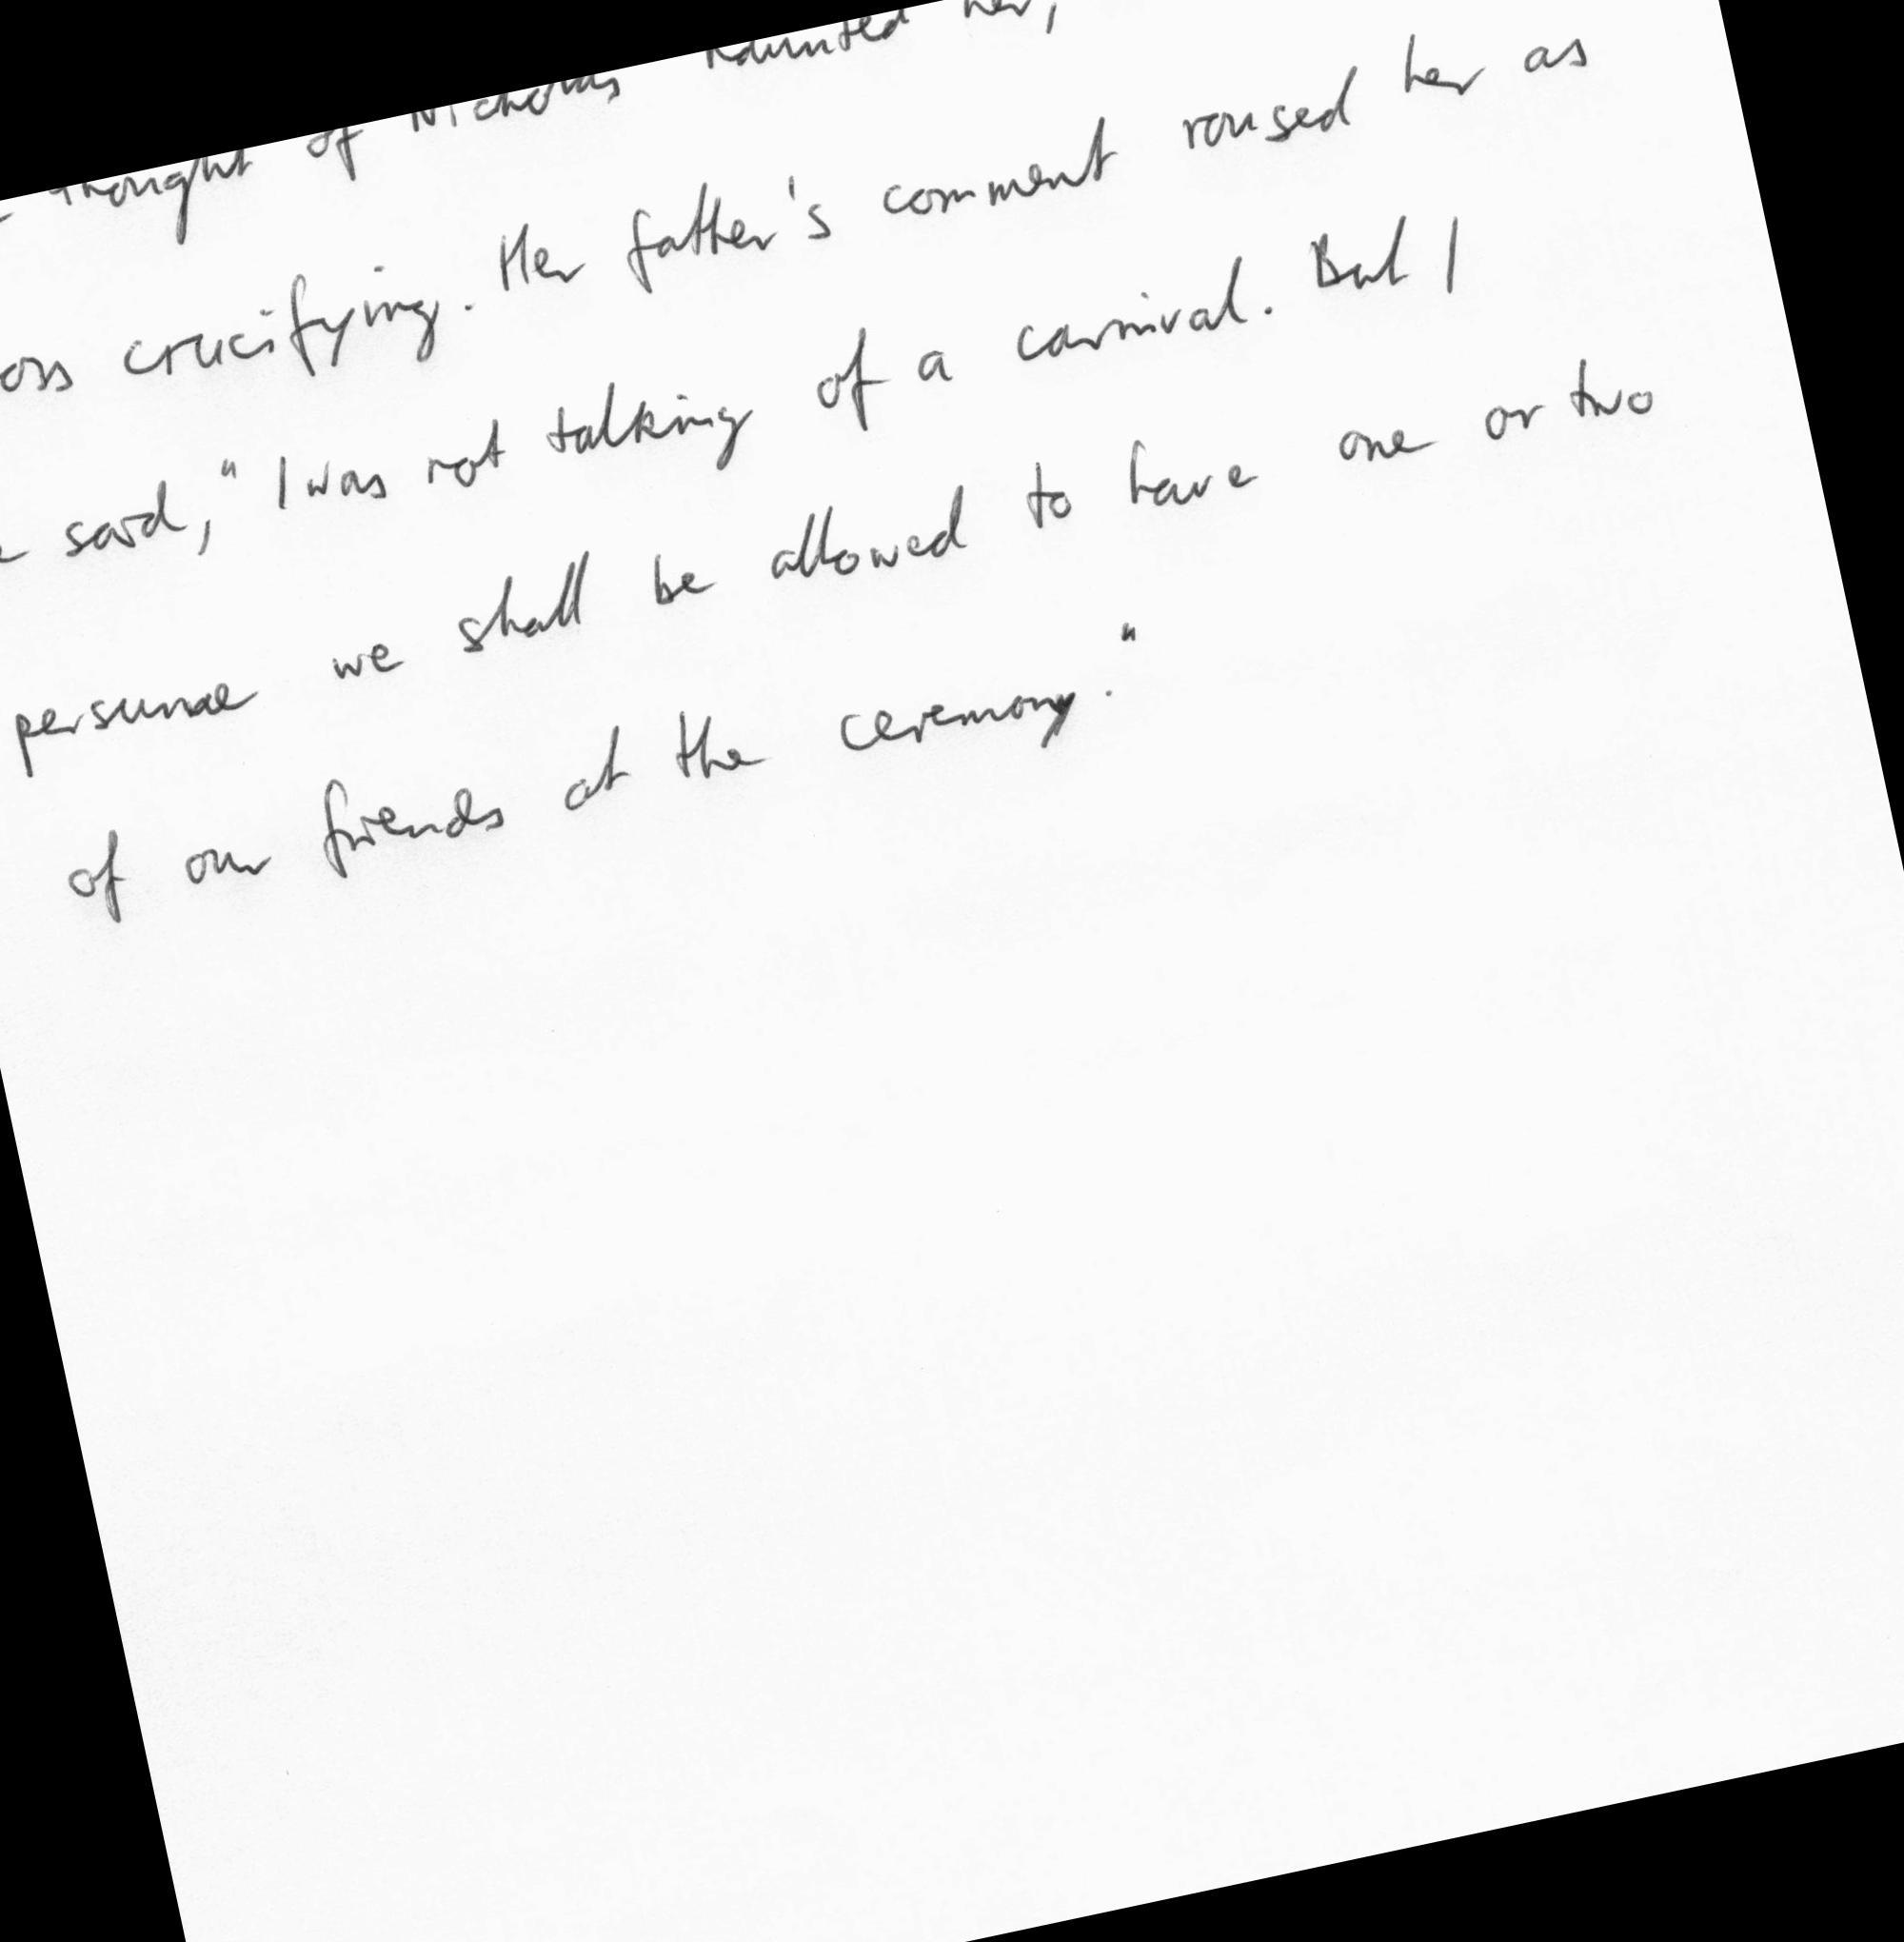 thought of Nicholas haunted her,
crucifying. Her father's comment roused her as
said, "I was not talking of a carnival. But I
persume we shall be allowed to have one or two
of our friends at the ceremony."